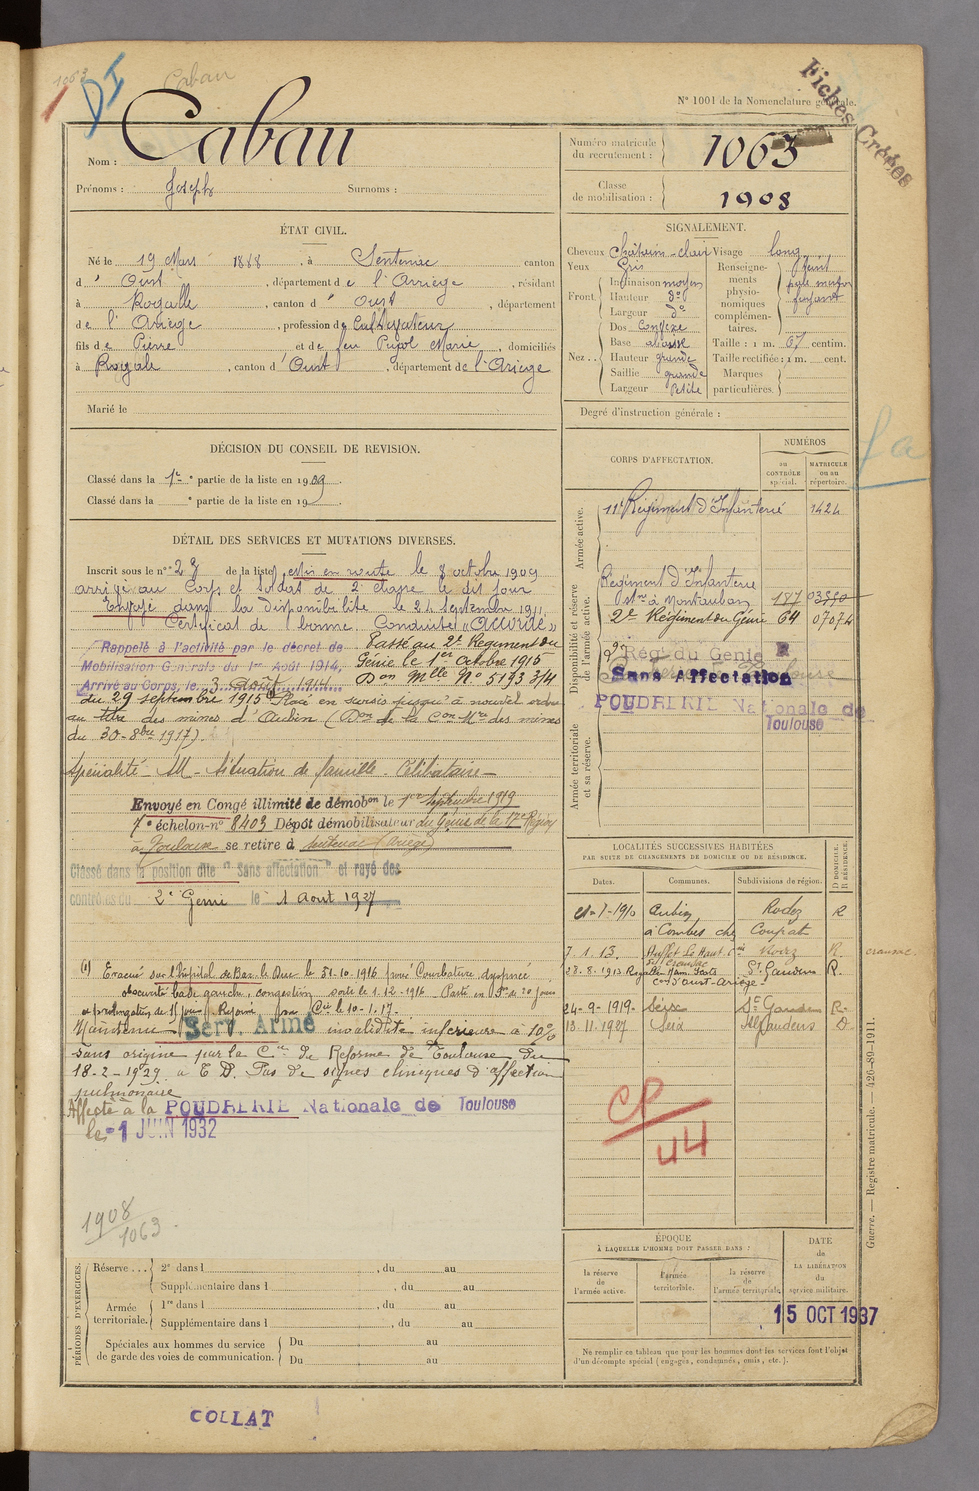 1063
DI
Caban
N° 1001 de la Nomenclature générale.
Fiches Créées
Nom : Caban
Prénoms : Joseph Surnoms :
Numéro matricule du recrutement : 1063
Classe de mobilisation : 1908
ÉTAT CIVIL.
Né le 19 Mars 1888, à Sentenac canton
d' Oust, département de l'Ariège, résidant
à Rogalle, canton d' Oust, département
de l'Ariège, profession de Cultivateur
fils de Pierre et de feu Pujol Marie, domiciliés
à Rogale, canton d'Oust, département de l'Ariège
Marié le
SIGNALEMENT.
Cheveux châtain-clair Visage long
Yeux Gris
Front. Inclinaison moyen
Hauteur d°
Largeur d°
Nez.. Dos Convexe
Base abaissé
Hauteur grande
Saillie grande
Largeur petite
Renseignements physionomiques complémentaires.
Taille : 1 m. 67 centim.
Taille rectifiée : 1 m. cent.
Marques particulières.
Degré d'instruction générale :
DÉCISION DU CONSEIL DE REVISION.
Classé dans la 1re partie de la liste en 1909.
Classé dans la ° partie de la liste en 19 .
CORPS D'AFFECTATION.
NUMÉROS
au CONTRÔLE spécial.
MATRICULE ou au répertoire.
Armée active.
11e Régiment d'Infanterie 1424
Disponibilité et réserve de l'armée active.
Régiment d'Infanterie
à Montauban 187 03550
2e Régiment du Génie 64 07074
Rég. du Génie R
Sans Affectation
POUDRERIE Nationale de Toulouse
Armée territoriale et sa réserve.
DÉTAIL DES SERVICES ET MUTATIONS DIVERSES.
Inscrit sous le n° 27 de la liste, mis en route le 8 octobre 1909
arrivé au Corps et Soldat de 2e classe le dit jour
Envoyé dans la disponibilité le 24 Septembre 1911.
Certificat de bonne Conduite "accordé"
Rappelé à l'activité par le décret de
Mobilisation Générale du 1er Août 1914,
Arrivé au Corps, le 3 Août 1914
Passé au 2e Regiment du
Génie le 1er Octobre 1915
Don Mlle N° 5193 3/4
du 29 septembre 1915 Placé en sursis jusqu'à nouvel ordre
au titre des mines d'Aubin (Don de la Con Mre des mines
du 30-8bre 1917).
Spécialité - M - Situation de famille - Célibataire -
Envoyé en Congé illimité de démobon le 1er Septembre 1919
7e échelon-n° 8403 Dépôt démobilisateur du Génie de la 17e Région
à Toulouse se retire à Sentenac (Ariège)
Classé dans la position dite "Sans affectation" et rayé des
contrôles du 2e Génie le 1 Aout 1927
(1) Evacué sur l'Hôpital de Bar le Duc le 31-10-1916 pour Courbature, dyspnée
obscurité base gauche, congestion sorti le 1-12-1916
Maintenu Serv. Armé invalidité inférieure à 10%
sans origine par la Cn de Réforme de Toulouse du
18-2-1929 Pas de signes cliniques d'affection
pulmonaire
Affecté à la POUDRERIE Nationale de Toulouse
le -1 JUIN 1932
1908
1063
LOCALITÉS SUCCESSIVES HABITÉES
PAR SUITE DE CHANGEMENTS DE DOMICILE OU DE RÉSIDENCE.
Dates. Communes. Subdivisions de région. D DOMICILE. R RÉSIDENCE.
21-7-1910 Aubin, Rodez R
à Combes chez Couprat
7.1.13. Rodez R. cransac
28-8-1913 St Gaudens R.
Con d'Oust-Ariège
24-9-1919 Seix St Gaudens R
13.11.1927 Seix St Gaudens D
CP
44
Guerre. — Registre matricule. — 426-89-1911.
PÉRIODES D'EXERCICES.
Réserve... 2e dans l , du au
Supplémentaire dans l , du au
Armée territoriale. 1re dans l , du au
Supplémentaire dans l , du au
Spéciales aux hommes du service de garde des voies de communication. Du au
Du au
ÉPOQUE
À LAQUELLE L'HOMME DOIT PASSER DANS :
la réserve de l'armée active.
l'armée territoriale.
la réserve de l'armée territoriale.
DATE de LA LIBÉRATION du service militaire.
15 OCT 1937
Ne remplir ce tableau que pour les hommes dont les services font l'objet
d'un décompte spécial (engagés, condamnés, omis, etc.).
COLLAT